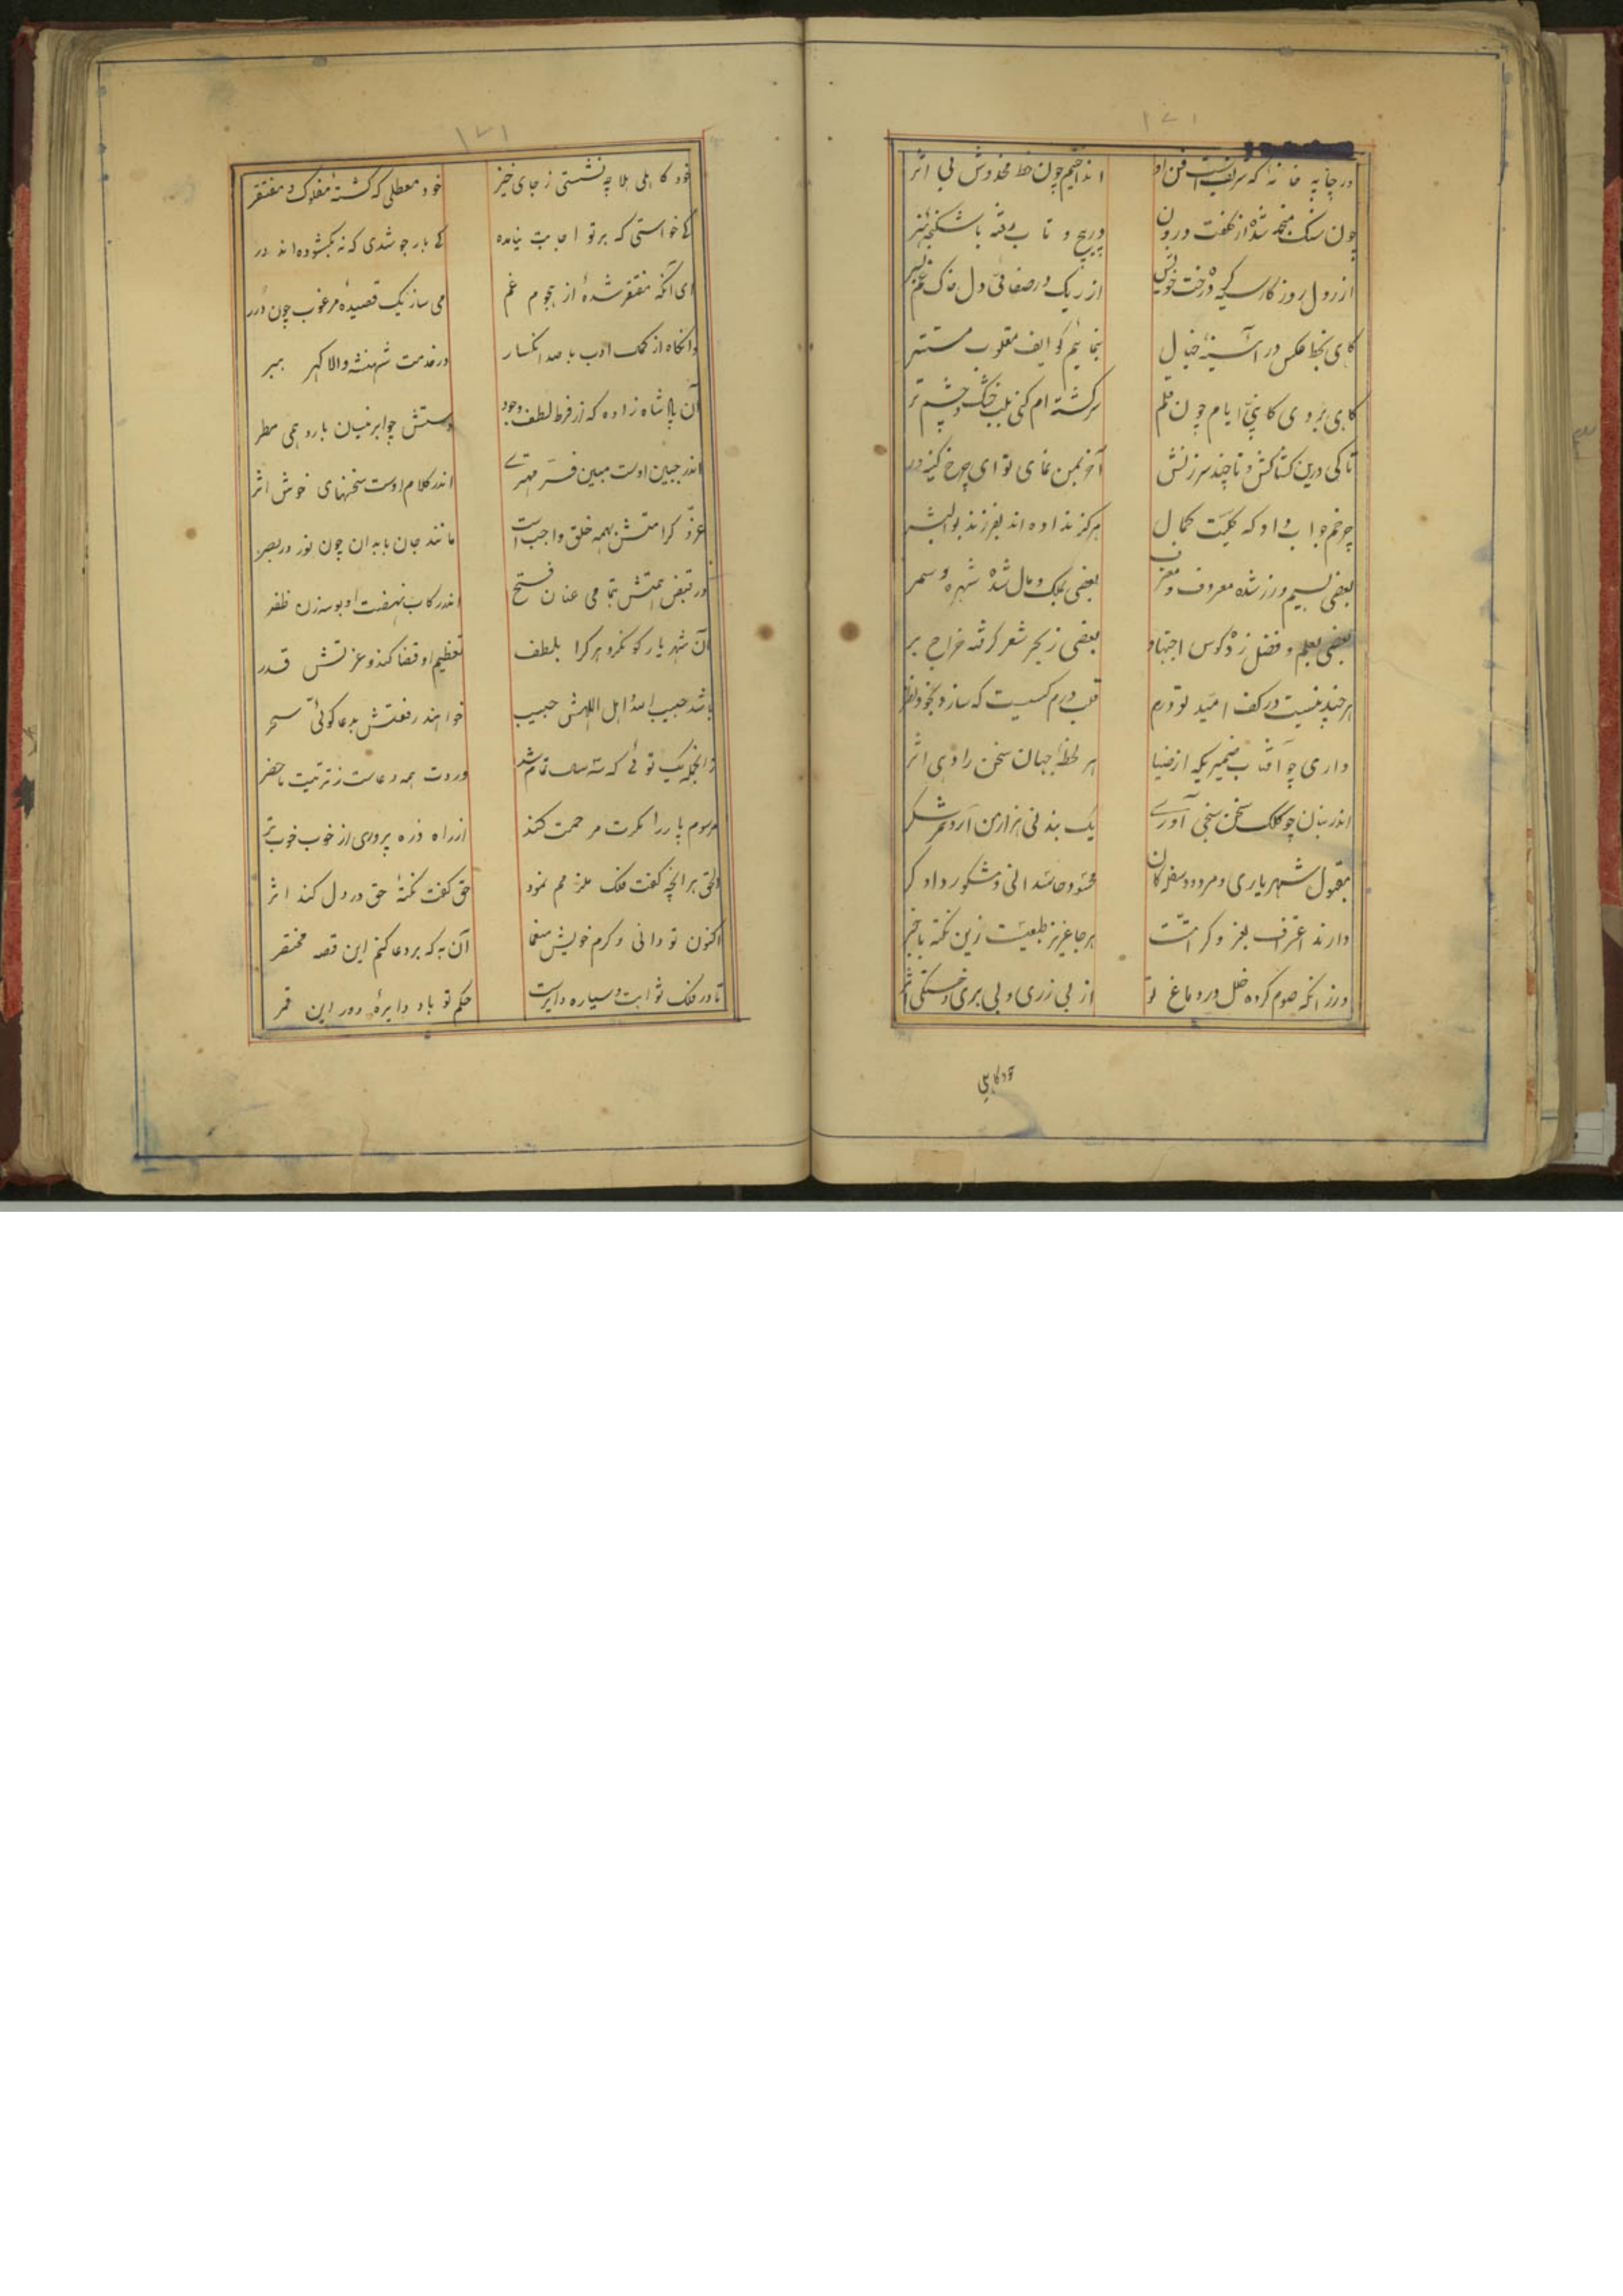 ۱۷۱
در چاپه خانه که شریف است فن او اندا ختیم چون خط مخدوش بی اثر
چون سنک منجمد شده از کلفت درون در پیچ و تاب رفته باشکنجه
از رول روزکار سیه درخت خویش از ریک در صفا فی دل خاک غم
کاهی بخط عکس در آئینه خیال بنمائیم کوایف مقلوب مستتر
کاهی بروی کاپی ایام چون قلم سرکشته ام کنی بلب خشک و چشم تر
تاکی درین کشاکش و تا چند سرزنش آخر بمن نمای تو ای چرخ کینه در
چرخم جواب داد که حکمت کمال هرکز نداده اند بفرزند بوالبشر
بعضی بسیم و زر شده معروف بعضی بملک و مال شده شهره و سمر
بعضی بعلم و فضل زده کوس اجتهاد بعضی ز بحر شعر کرفته خراج بر
هر چند نیست در کف امید تو درم قلب درم کسیست که سازد بخود نظر
داری چو آفتاب ضمیریکه از ضیا هر لحظه جهان سخن را دهی اثر
اندر بنان چو کلک سخن سنجی آوری یک بند نی هزار من آرد ثمر شکر
مقبول شهریاری و مردود سفله کان محسود حاسدانی و مشکور دادکر
دارند اعتراف بعز و کرامتت هر جا عزیز طلعیست زین نکته باخبر
ورزانکه صوم کرده خلل در دماغ تو از بی زری و بی بری و خستکی اثر
خود کاهلی
۱۷۱
خود کاهلی بلا چه نشستی ز جای خیز خود معطلی که کشته مفلوک و مفتقر
کی خواستی که بر تو اجابت نیامده کی بار جو شدی که نه بکشوده اند در
ای آنکه مفتقر شده از هجوم غم می ساز یک قصیده مرغوب چون درر
وانکاه از کمک ادب با صد انکسار در خدمت شهنشه والا کهر ببر
آن پادشاه زاده که از فرط لطف وجود دستش چو ابر نیسان بارد همی مطر
اندر جبین اوست مبین فر مهتری اندر کلام اوست سخنهای خوش اثر
عز و کرامتش بهمه خلق واجب است مانند جان بابدان چون نور در بصر
در قبض همتش بتمامی عنان فتح اندر رکاب نهضت او بوسه زن ظفر
آن شهریار کو نکرد هر کرا بلطف تعظیم او قضا کند و عزتش قدر
باشد حبیب الله اهل اللهش حبیب خواهند رفعتش بدعا کوئی سحر
زانجمله یک توئی که سه سال تمام شد وردت همه دعاست ز تربیت ماحضر
مرسوم پار را کمرت مرحمت کند از راه ذره پروری از خوب خوبتر
الحق هر انچه کفت فلک ملزمم نمود حق کفت نکته حق در دل کند اثر
اکنون تو دانی و کرم خویش منعما آن به که بر دعا کنم این قصه مختصر
تا در فلک ثوابت و سیاره دایرست حکم تو باد دایره دور این قمر